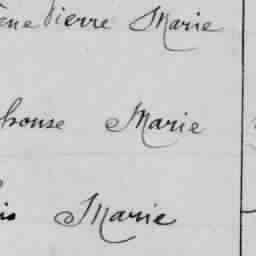 ène Pierre Marie
phonse Marie
is Marie